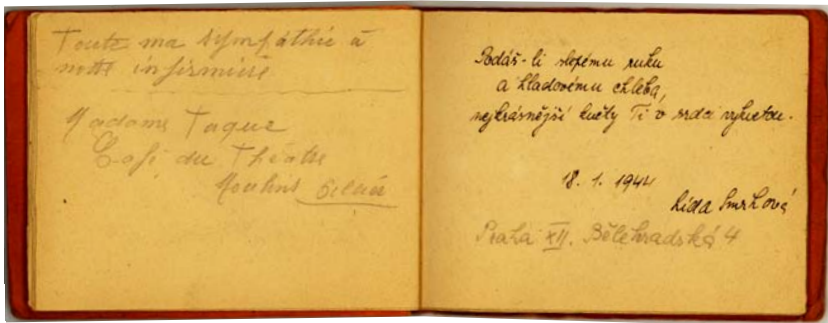 Toute ma sympathie à
notre infirmière
Madame Taque
Café du Théatre
Moulins
Podáš-li slepému ruku
a hladovému chleba,
nejkrásnější květy Ti v srdci vykvetou.
18. 1. 1944
Lída Smržová
Praha XII. Bělehradská 4